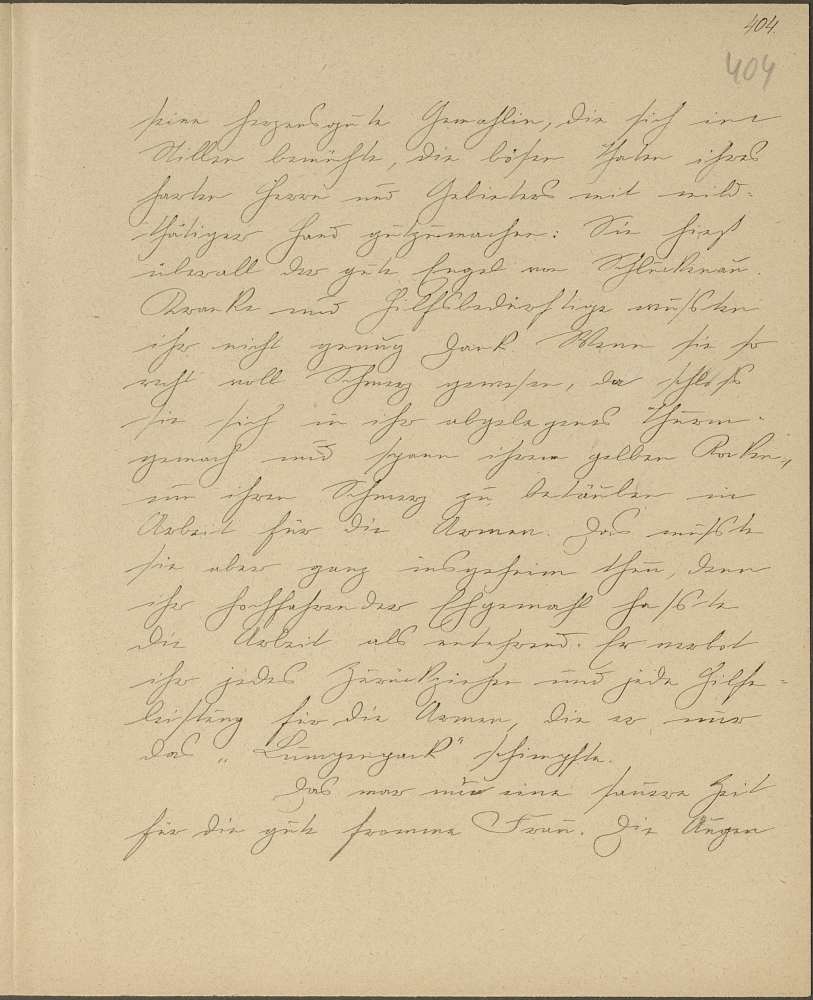 404.
404
seine herzensgute Gemahlin, die sich im
Stillen bemühte, die bösen Thaten ihres
harten Herrn und Gebieters mit mild-
thätiger Hand gutzumachen: Sie hieß
überall der gute Engel von Schluckenau.
Kranke und Hilfsbedürftige wußsten
ihr nicht genug Dank. Wenn sie so
recht voll Schmerz gewesen, da schloß
sie sich in ihr abgelegenes Thurm-
gemach und spann ihren gelben Rocken,
um ihren Schmerz zu betäuben in
Arbeit für die Armen. Das mußste
sie aber ganz insgeheim thun, denn
ihr hochfahrender Ehgemahl haßste
die Arbeit als entehrend. Er verbot
ihr jedes Zurückziehen und jede Hilfe-
leistung für die Armen, die er nur
das „Lumpenpack" schimpfte.
Das war nun eine sauere Zeit
für die gute fromme Frau. Die Augen